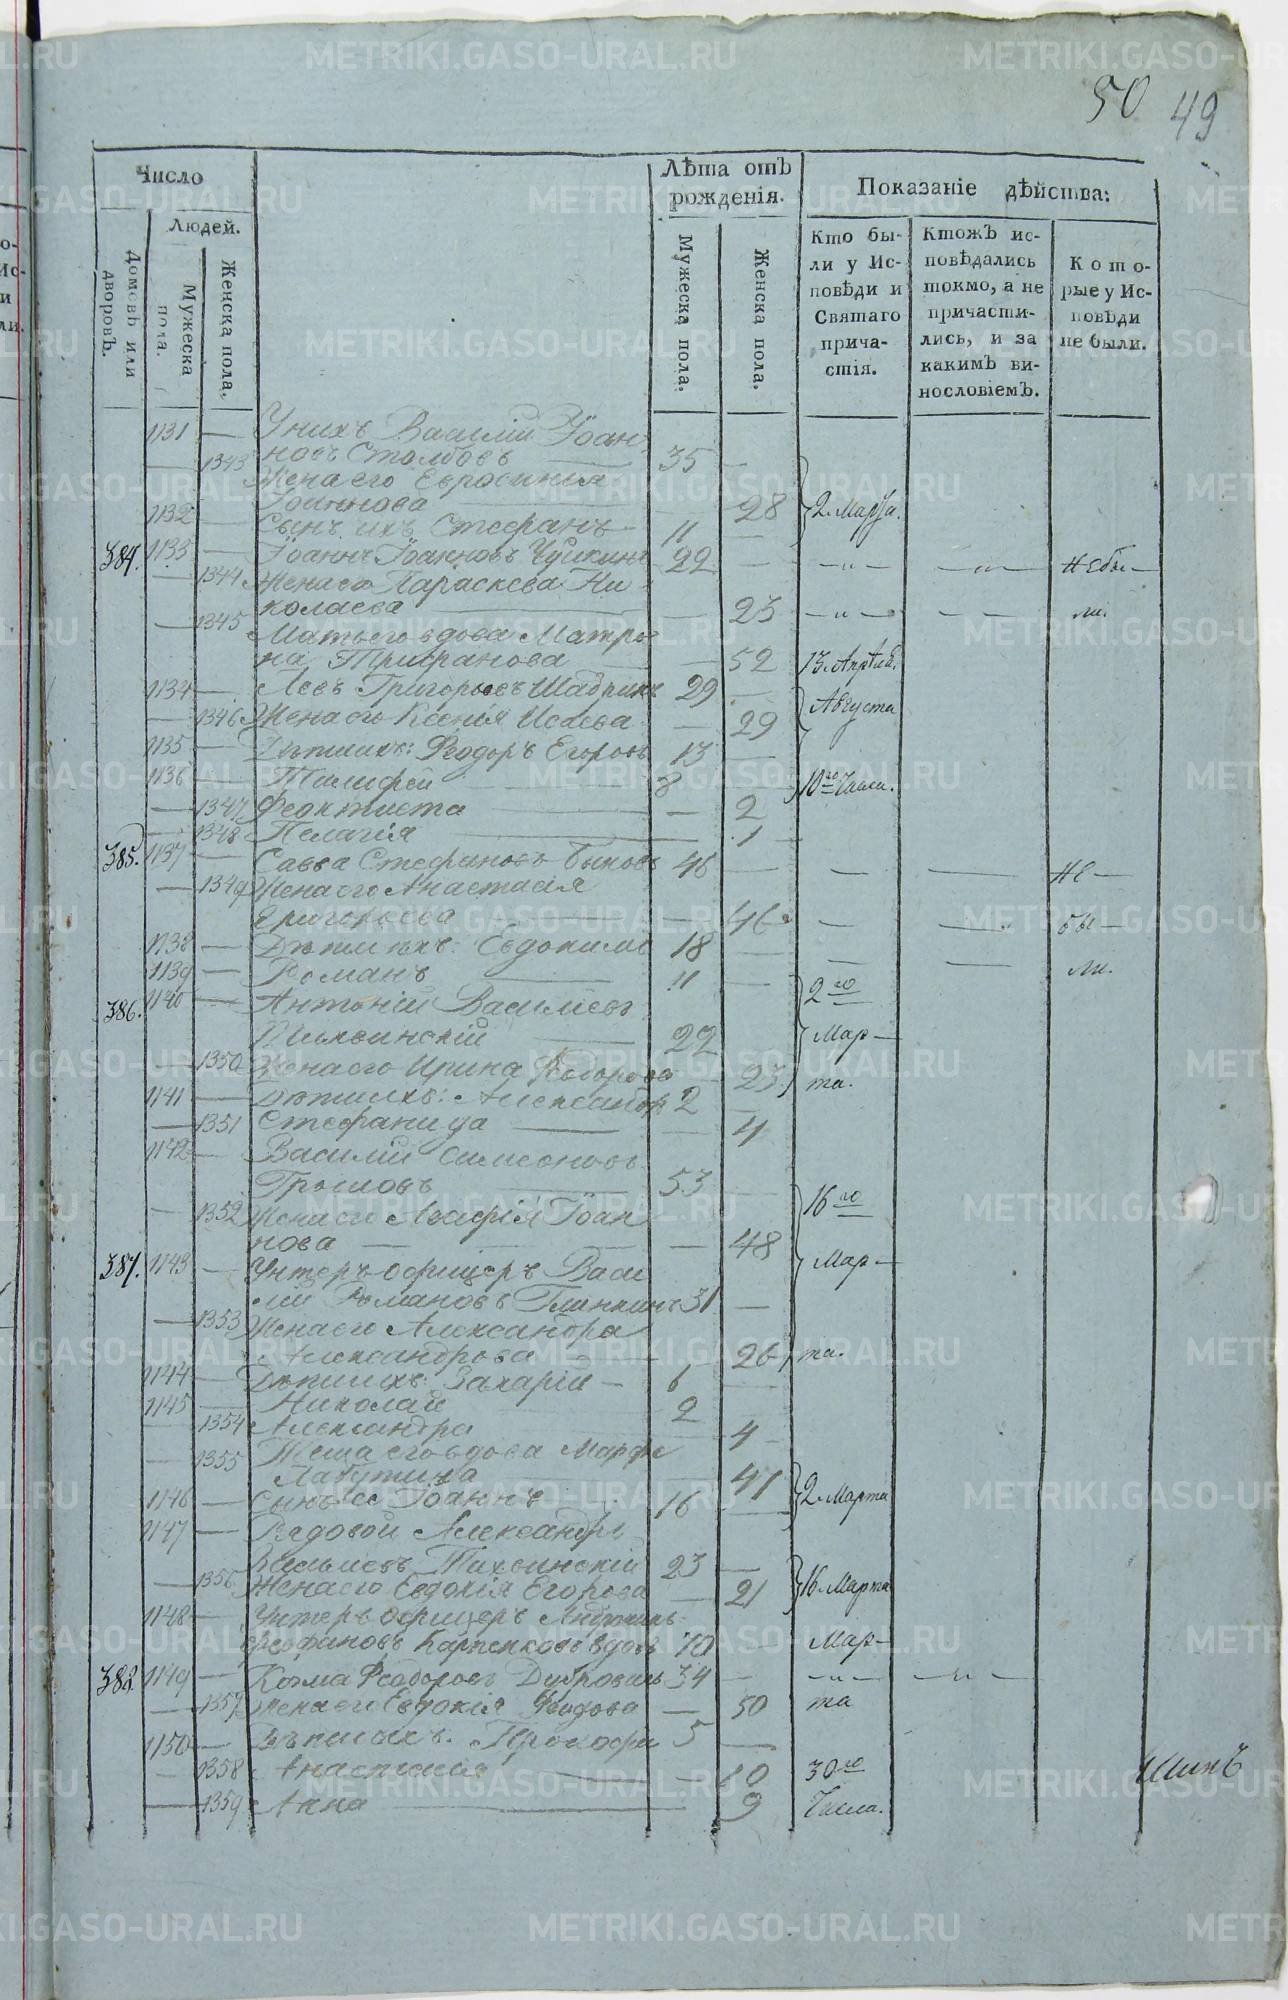 50 49
Число
Людей.
Домовъ или дворовъ.
Мужеска пола.
Женска пола.
Лѣта отъ рожденія.
Мужеска пола.
Женска пола.
Показаніе дѣйства:
Кто были у Исповѣди и Святаго причастія.
Ктожъ исповѣдались токмо, а не причастились, и за какимъ винословіемъ.
Которые у Исповѣди не были.
1131 — Унихъ Василій Іоан
новъ Столбовъ — 35 —
— 1343 Жена его Евросинія
Іоаннова — 28 2 Марта.
1132 — Сынъ ихъ Стефанъ — 11 —
384. 1133 — Іоаннъ Іоанновъ 22 — — „ — — „ — не бы —
— 1344 Жена его Параскева Ни
колаева — — 23 — „ — — — ли.
— 1345 Мать его вдова Матро
на Трифанова — 52 13 Апрѣля.
1134 — Левъ Григорьевъ Шабринъ 29 —
— 1346 Жена его Ксенія Исаева — 29 Августа
1135 — Дѣти ихъ: Ѳеодоръ Егоровъ 13 —
1136 — 8 — 10го Числа.
— 1347 Феоктиста — — 2
— 1348 Пелагія — 1 —
385. 1137 — Савва Стефановъ Быковъ 46 — — — не —
— 1349 Жена его Анастасія
Григорьева — — 46 — — бы —
1138 — Дѣти ихъ: Евдокимъ 18 — — — ли.
1139 — Романъ — 11 —
386. 1140 — Антоній Василіевъ 2го
Тихвинскій — 22 Мар —
— 1350 Жена его Ирина Ѳеодорова — 23 та.
1141 — Дѣти ихъ: Александр 2 —
— 1351 Стефанида — — 4
1142 — Василій Симеоновъ
— 53 — 16го
— 1352 Жена его Агафія Іоан
нова — — — 48
387. 1143 — Унтеръ офицеръ Васи Мар —
лій Романовъ Глинкинъ 31 —
— 1353 Жена его Александра
Александрова — 26 та.
1144 — Дѣти ихъ: Захарій — 6 —
1145 — Николай 2
— 1354 Александра — 4 —
— 1355 Теща его вдова Марфа
— — 41
1146 — Сынъ ее Іоаннъ — 16 — 2 Марта
1147 — Рядовой Александръ
Васильевъ Тихвинскій 23 —
— 1356 Жена его Евдокія Егорова — 21 16 Марта
1148 — Унтеръ офицеръ
Феофановъ вдовъ 70 — Мар —
388. 1149 — Козма Ѳеодоровъ 34 — — „ — — „ —
— 1357 Жена его Евдокія — 50 та
1150 — Дѣти ихъ: Прокофи 5 —
— 1358 Анастасія — — 10 30го
— 1359 Анна — 9 Числа.
METRIKI.GASO-URAL.RU